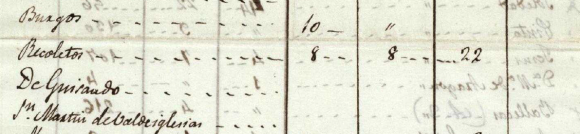 Burgos - - - - - - 10 - "
Recoletos - - - - - 8 - - 8 - - - 22
De Guisando - - - - - -
Sn. Martin de Valdeiglesias - - - -